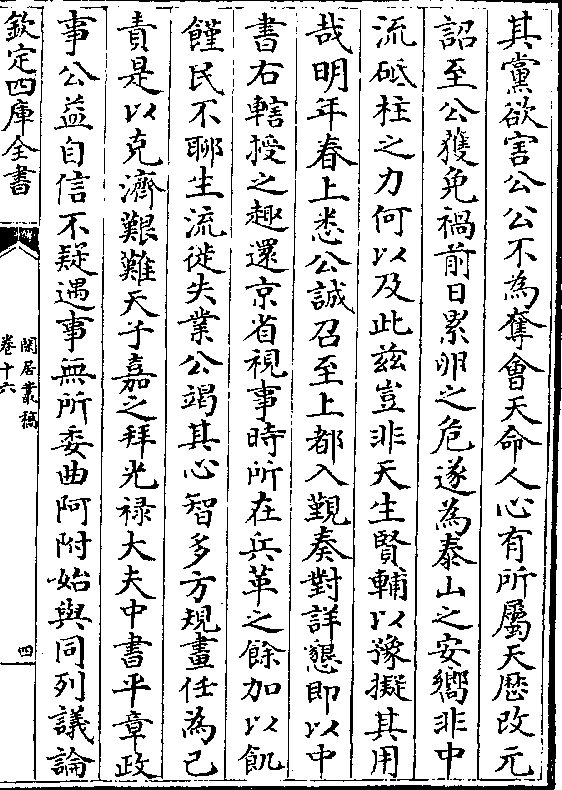 其黨欲害公公不為奪會天命人心有所屬天厯改元
詔至公獲免禍前日累卵之危遂為泰山之安嚮非中
流砥柱之力何以及此兹豈非天生賢輔以豫擬其用
哉明年春上悉公誠召至上都入覲奏對詳懇即以中
書右轄授之趣還京省視事時所在兵革之餘加以飢
饉民不聊生流徙失業公竭其心智多方規畫任為己
責是以克濟艱難天子嘉之拜光禄大夫中書平章政
事公益自信不疑遇事無所委曲阿附始與同列議論
欽定四庫全書
閒居叢稿
卷十六
四